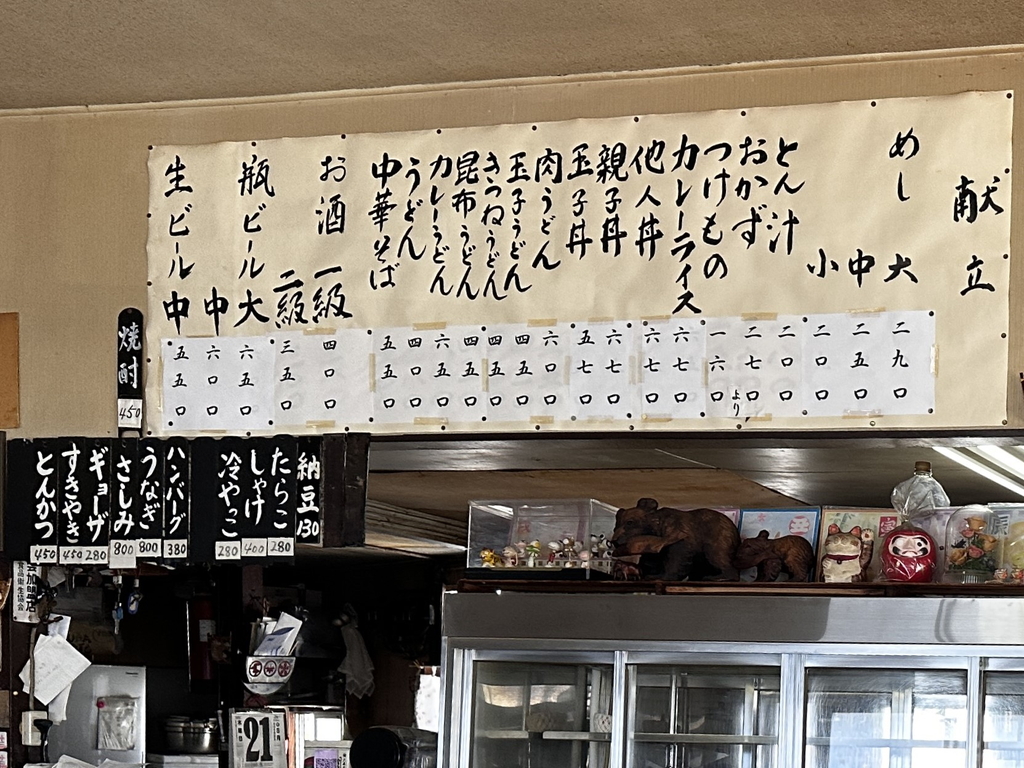 献立
めし 大 二九〇
中 二五〇
小 二〇〇
とん汁 二〇〇
おかず 二七〇より
つけもの 一六〇
カレーライス 六七〇
他人丼 六七〇
親子丼 六七〇
玉子丼 五七〇
肉うどん 六〇〇
玉子うどん 四五〇
きつねうどん 四五〇
昆布うどん 四五〇
カレーうどん 六五〇
うどん 四〇〇
中華そば 五五〇
お酒 一級 四〇〇
二級 三五〇
瓶ビール 大 六五〇
中 六〇〇
生ビール 中 五五〇
焼酎 450
納豆 130
たらこ 280
しゃけ 400
冷やっこ 280
ハンバーグ 380
うなぎ 800
さしみ 800
ギョーザ 280
すきやき 450
とんかつ 450
21